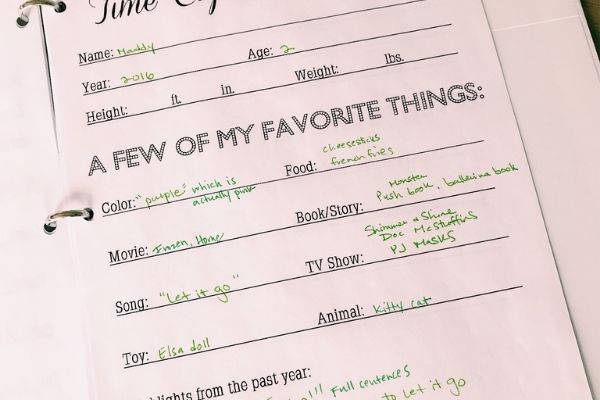 Time
Name: Maddy Age: 2
Year: 2016
Height: ft. in. Weight: lbs.
A FEW OF MY FAVORITE THINGS:
Color: "purple" which is actually pink Food: cheesesticks french fries
Movie: Frozen, Home Book/Story: Monster Push book, ballerina book
Song: "Let it go" TV Show: Shimmer & Shine Doc McStuffins PJ Masks
Toy: Elsa doll Animal: kitty cat
from the past year:
Full sentences
to let it go